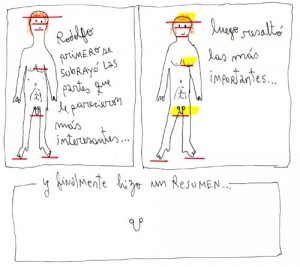 Rodolfo
primero se
subrayó las
partes que
le parecieron
más
interesantes...
luego resaltó
las más
importantes...
y finalmente hizo un resumen...